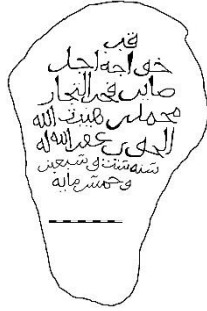 قبر
خواجه اجل
صاين فخر التجار
محمد بن هبت الله
الجوى غفر الله له
سنه ست و سبعين
و خمس مايه